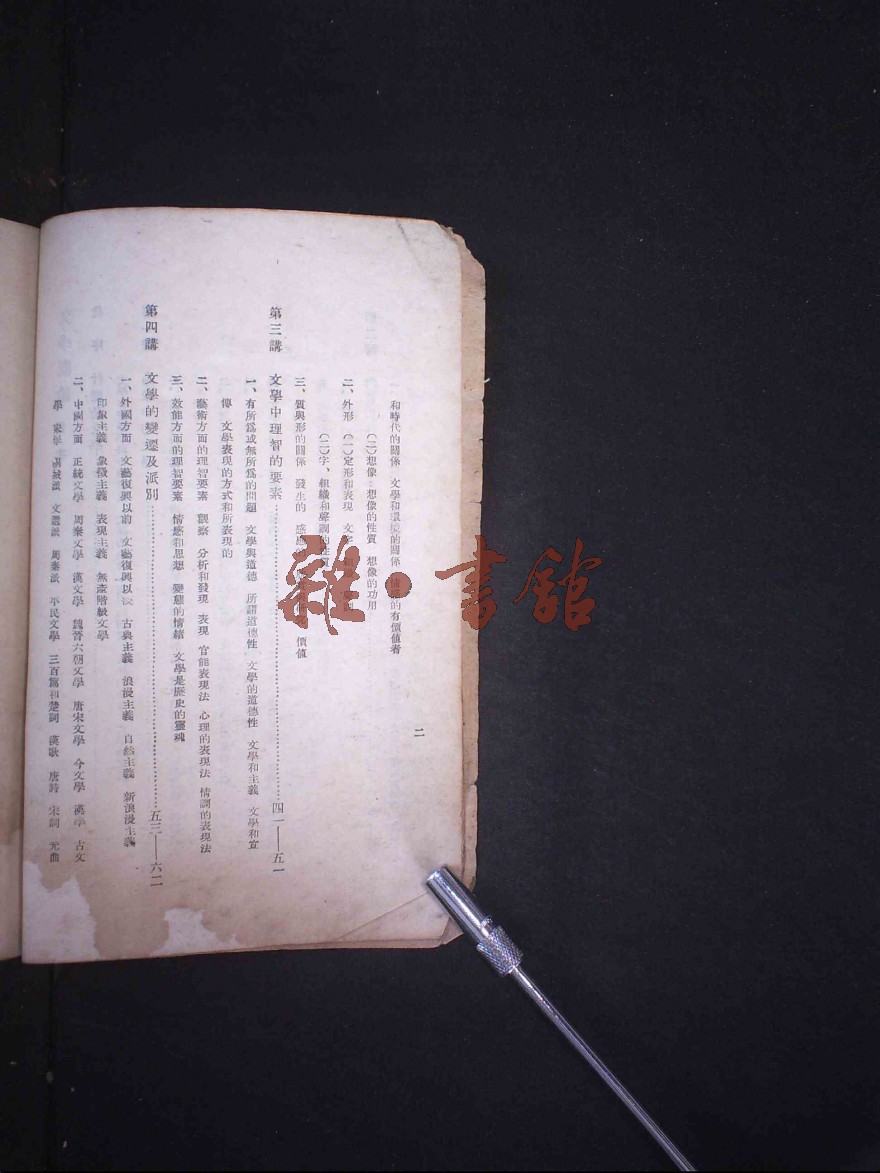 二
和時代的關係　文學和環境的關係　情感的有價值者
(二)想像：想像的性質　想像的功用
二、外形　(一)定形和表現　文字
(二)字、組織和聲調的性質
三、質與形的關係　發生的　感應　價值
第三講　文學中理智的要素……四一——五一
一、有所爲或無所爲的問題　文學與道德　所謂道德性　文學的道德性　文學和主義　文學和宣
傳　文學表現的方式和所表現的
二、藝術方面的理智要素　觀察　分析和發現　表現　官能表現法　心理的表現法　情調的表現法
三、效能方面的理智要素　情感和思想　變態的情緒　文學是歷史的靈魂
第四講　文學的變遷及派別……五三——六二
一、外國方面　文藝復興以前　文藝復興以後　古典主義　浪漫主義　自然主義　新浪漫主義
印象主義　象徵主義　表現主義　無產階級文學
二、中國方面　正統文學　周秦文學　漢文學　魏晉六朝文學　唐宋文學　今文學　漢學　古文
學　宋學　桐城派　文選派　周秦派　平民文學　三百篇和楚詞　漢歌　唐詩　宋詞　元曲
雜·書館